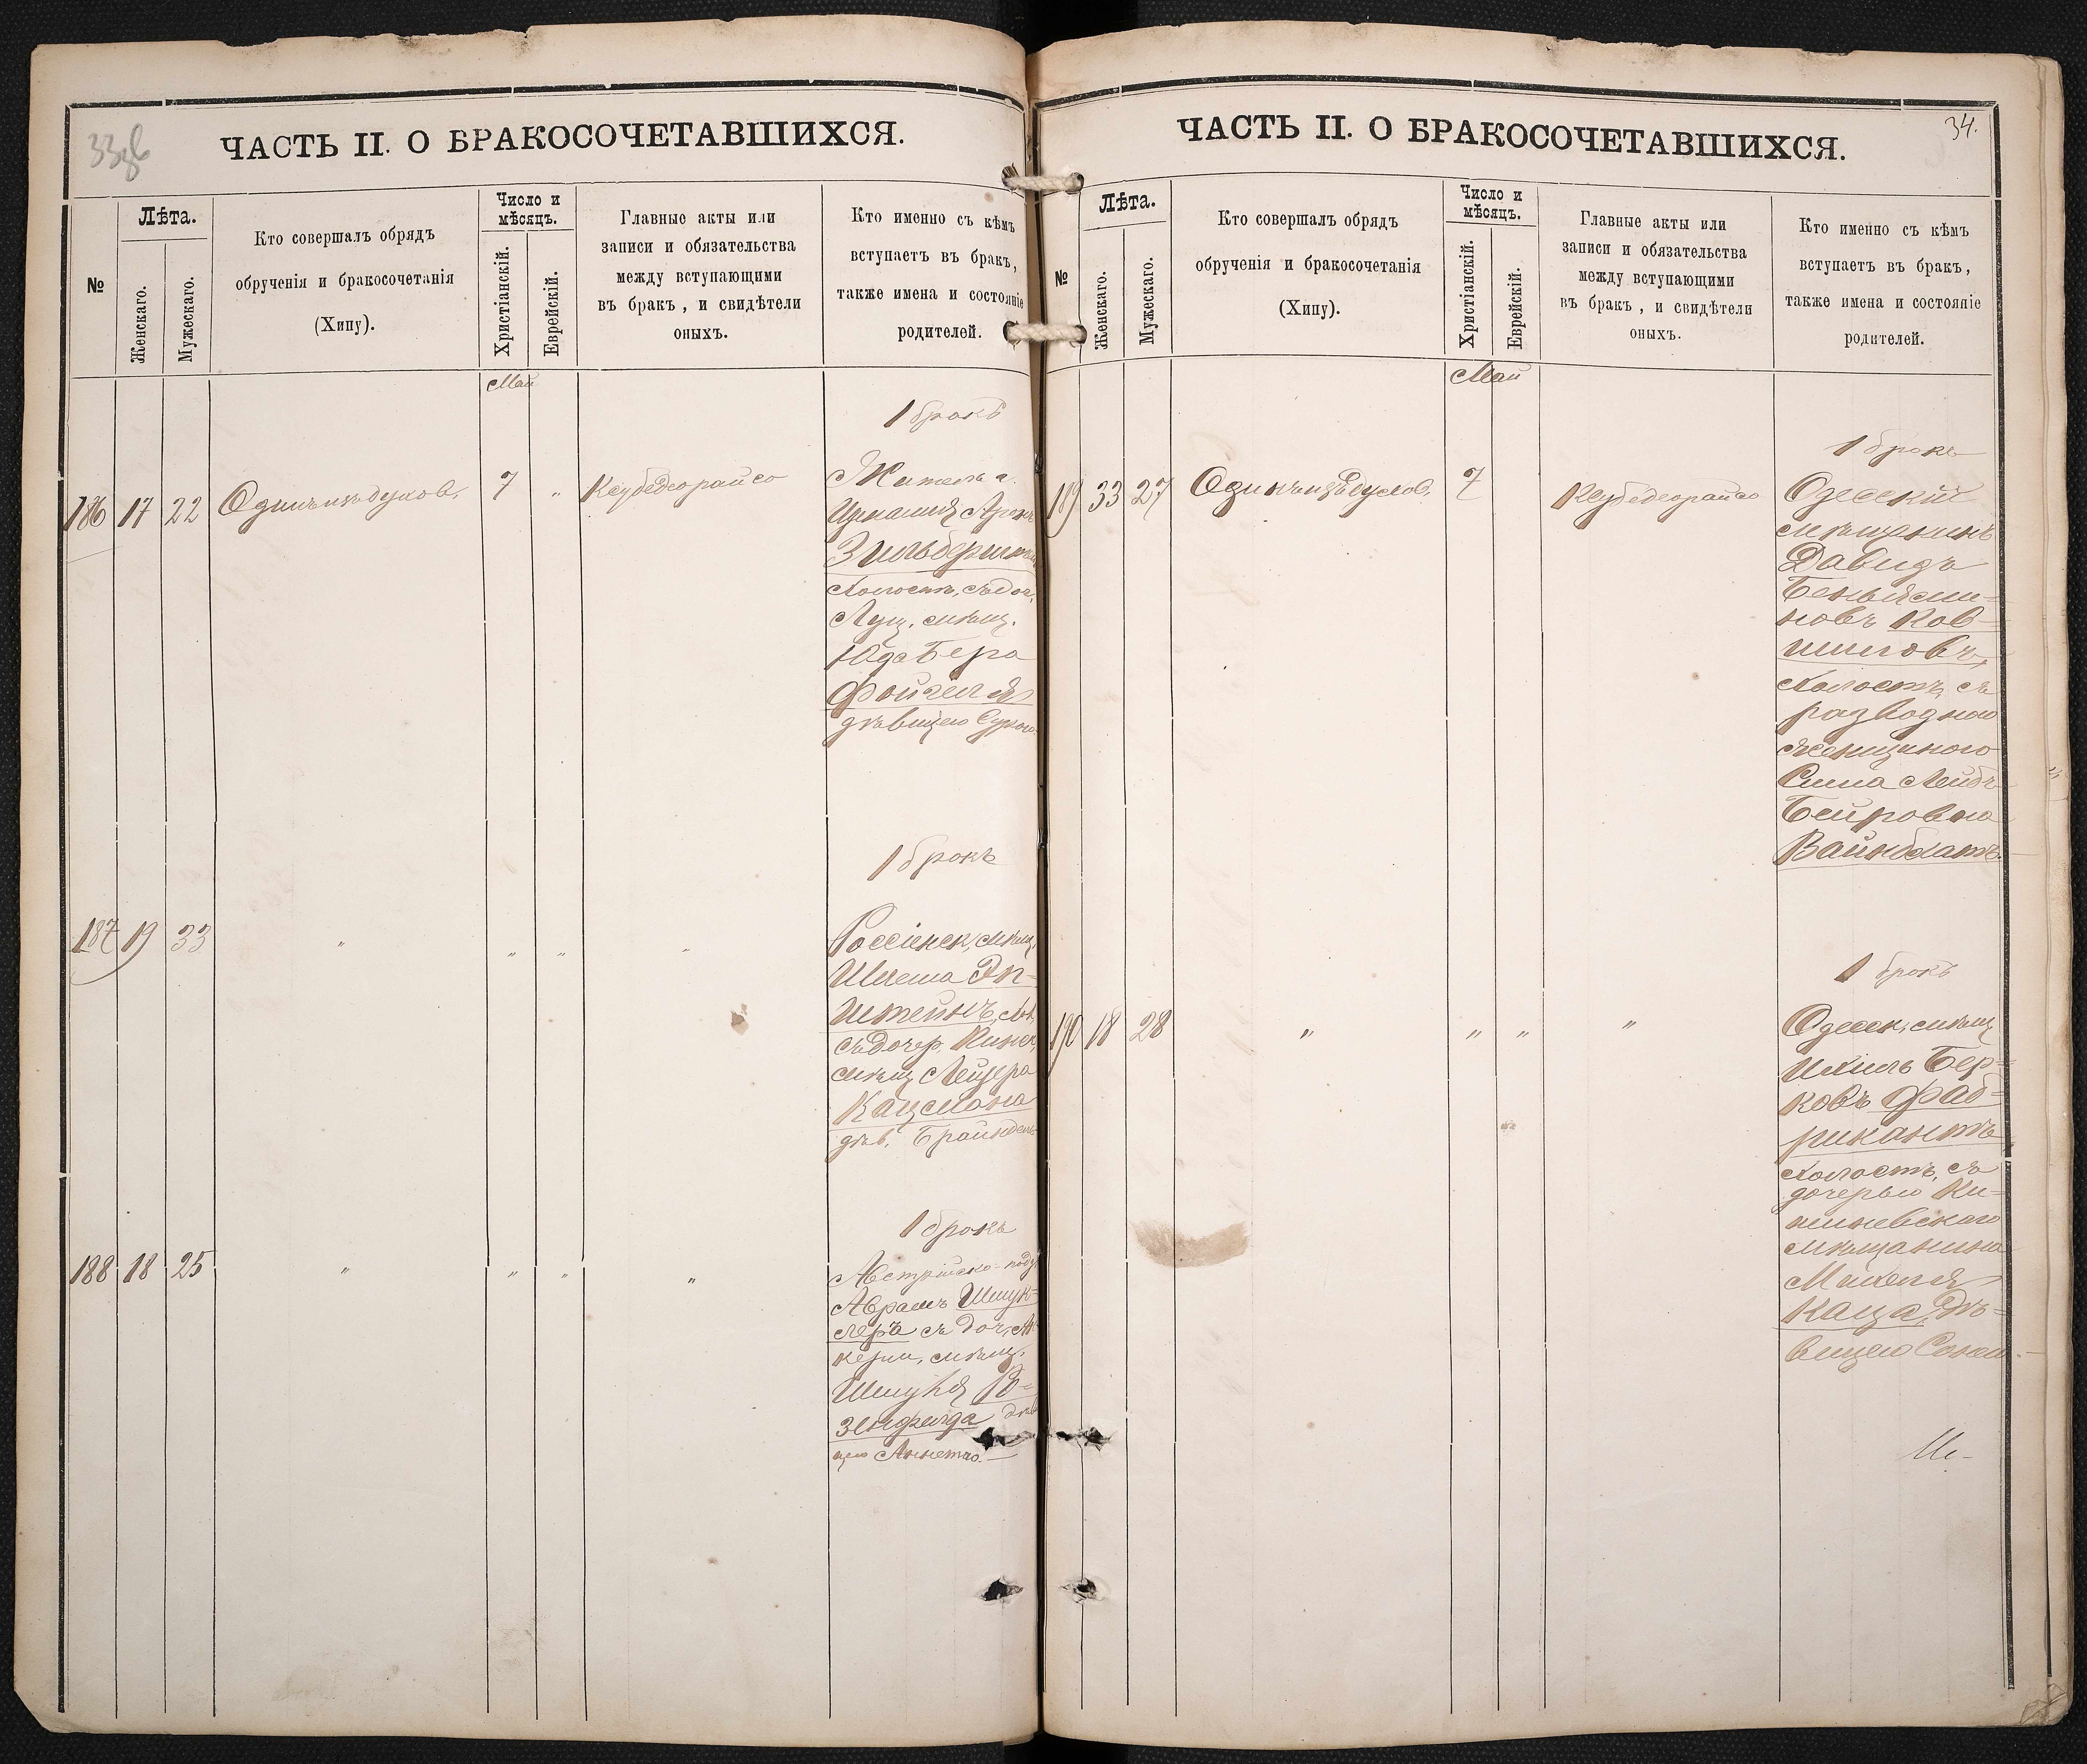 33об
ЧАСТЬ II. О БРАКОСОЧЕТАВШИХСЯ.
№
Лѣта.
Женскаго.
Мужескаго.
Кто совершалъ обрядъ
обрученія и бракосочетанія
(Хипу).
Число и
мѣсяцъ.
Христіанскій.
Еврейскій.
Главные акты или
записи и обязательства
между вступающими
въ бракъ, и свидѣтели
оныхъ.
Кто именно съ кѣмъ
вступаетъ въ бракъ,
также имена и состояніе
родителей.
Май
1 бракъ
186 17 22 Одинъ изъ духов. 7 " Ксубедеорайсо
Житель г.
Зильберштейн
холостъ, съ доч.
Луц. мѣщ.
Юда Бера
Фойгеля
дѣвицею Сурою
1 бракъ
187 19 33 " " " "
Россіенск. мѣщ.
Шлема Эп-
штейнъ, хол.
съ дочер. Пинск.
мѣщ. Лейзера
Кацмана
дѣв. Брайндель
1 бракъ
188 18 25 " " " "
Австрійско-подд.
Абрамъ Шмук-
леръ съ доч. Ак-
керм. мѣщ.
Шмуля Ро-
зенфельда дѣви-
цею Аннетою.
34.
ЧАСТЬ II. О БРАКОСОЧЕТАВШИХСЯ.
№
Лѣта.
Женскаго.
Мужескаго.
Кто совершалъ обрядъ
обрученія и бракосочетанія
(Хипу).
Число и
мѣсяцъ.
Христіанскій.
Еврейскій.
Главные акты или
записи и обязательства
между вступающими
въ бракъ, и свидѣтели
оныхъ.
Кто именно съ кѣмъ
вступаетъ въ бракъ,
также имена и состояніе
родителей.
Май
1 бракъ
189 33 27 Одинъ изъ духов. 7 Ксубедеорайсо
Одесскій
мѣщанинъ
Давидъ
Беньями-
новъ Ков-
шиловъ,
холостъ, съ
разводною
женщиною
Лейбъ-
Бейровна
Вайнблатъ.
1 бракъ
190 18 28 " " " "
Одесск. мѣщ.
Ихиль Бер-
ковъ Фаб-
рикантъ
холостъ, съ
дочерью Ки-
шиневскаго
мѣщанина
Михеля
Каца, дѣ-
вицею Сонею.